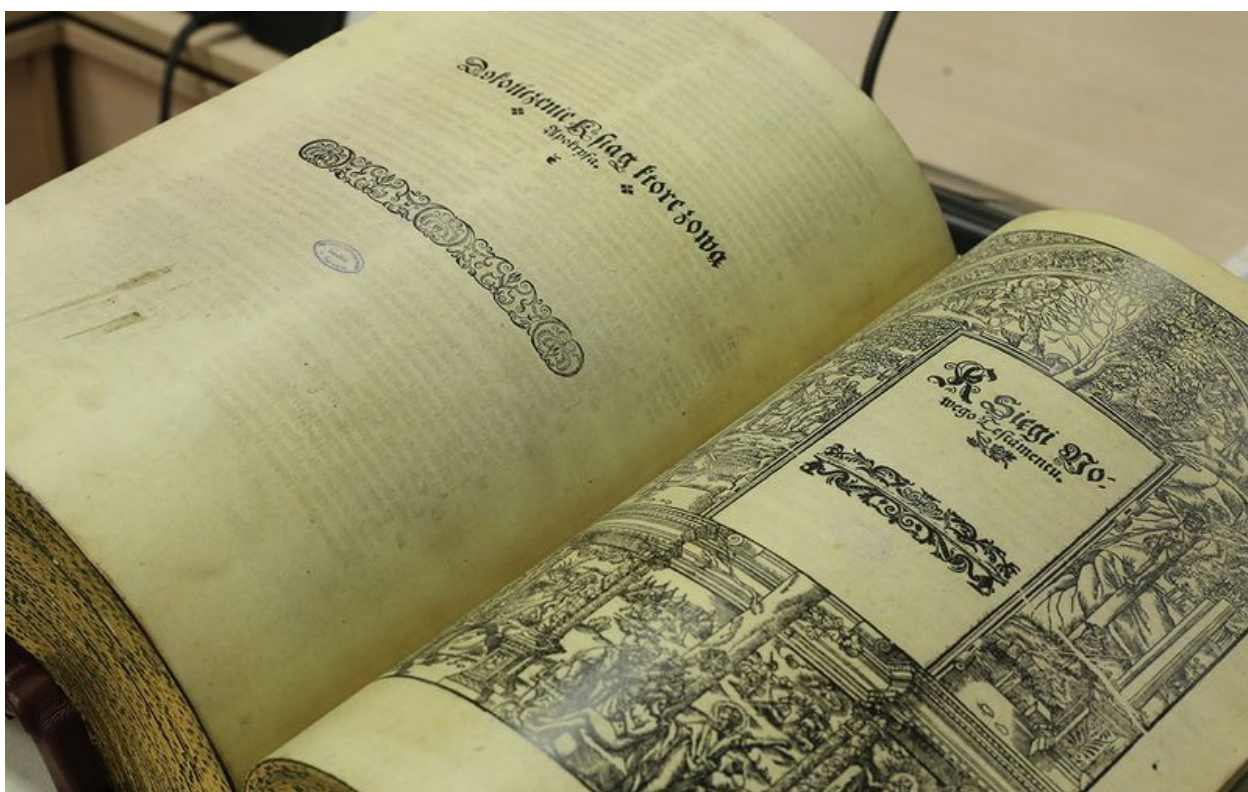 Dokończenie Ksiąg ktore zową
Apokrypha.
KSięgi No-
wego Testamentu.